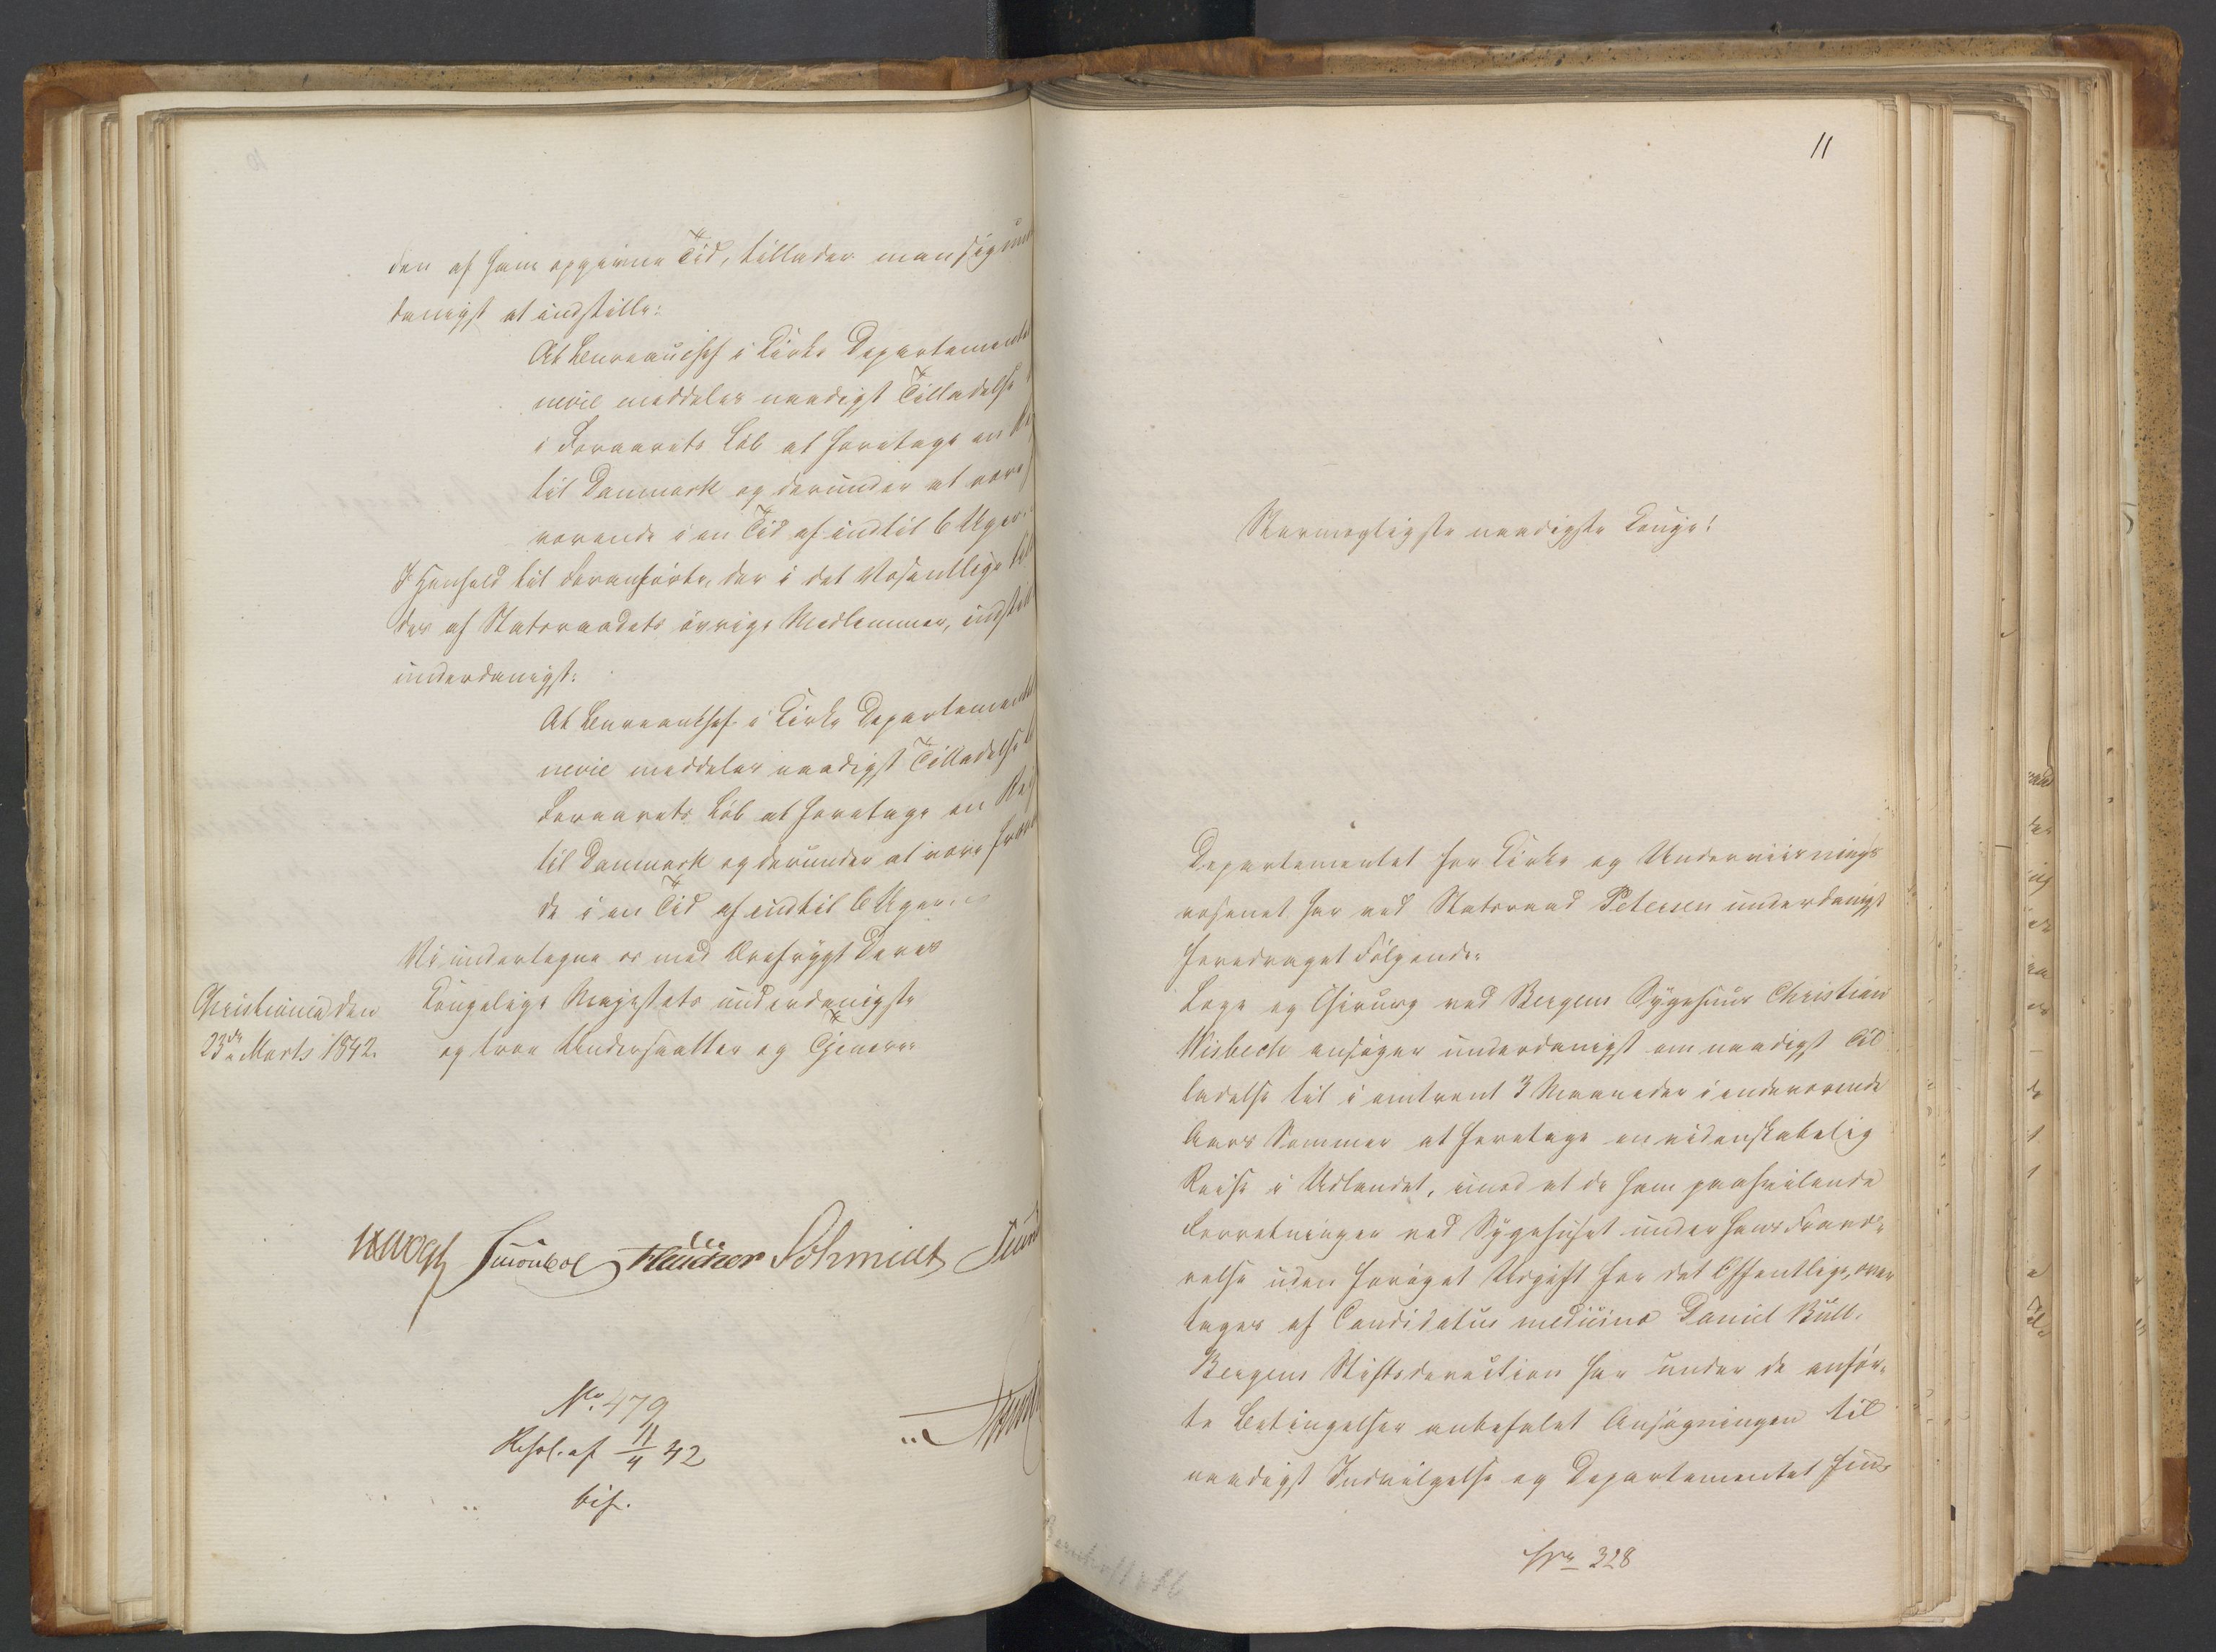 den af ham opgivne Tid, tillader man sig un
danigst at indstille:
At Bureauchef i Kirke Departementet
meddeles naadigst Tilladelse
i Foraarets Løb at foretage en
til Danmark og derunder at være
værende i en Tid af indtil 6 Uger.
I Henhold til Foranførte, der i det Væsentlige
des af Statsraadets øvrige Medlemmer, indstill
underdanigst:
At Bureauchef i Kirke Departementet
meddeles naadigst Tilladelse
Foraarets Løb at foretage en Rei
til Danmark og derunder at være fra
de i en Tid af indtil 6 Uger.
Vi undertegne os med Ærefrygt Deres
Christiania den
Kongelige Majestæts underdanigste
23de Marts 1842.
og troe Undersaatter og Tjenere
Vogt Schmidt
No. 479
Resol. af 11/4 42
bif.
11
Stormægtigste naadigste Konge!
Departementet for Kirke og Underviisnings
væsenet har ved Statsraad Petersen underdanigst
foredraget Følgende:
Læge og Chirurg ved Bergens Sygehuus Christian
Wisbech ansøger underdanigst om naadigst Til
ladelse til i omtrent 3 Maaneder i indeværende
Aars Sommer at foretage en videnskabelig
Reise i Udlandet, imod at de ham paahvilende
Forretninger ved Sygehuset under hans Fravæ-
relse uden forøget Udgift for det Offentlige, over
tages af Candidatus medicinæ Daniel Bull.
Bergens Stiftsdirection har under de anfør-
te Betingelser anbefalet Ansøgningen til
naadigst Indvilgelse og Departementet finder
No 328